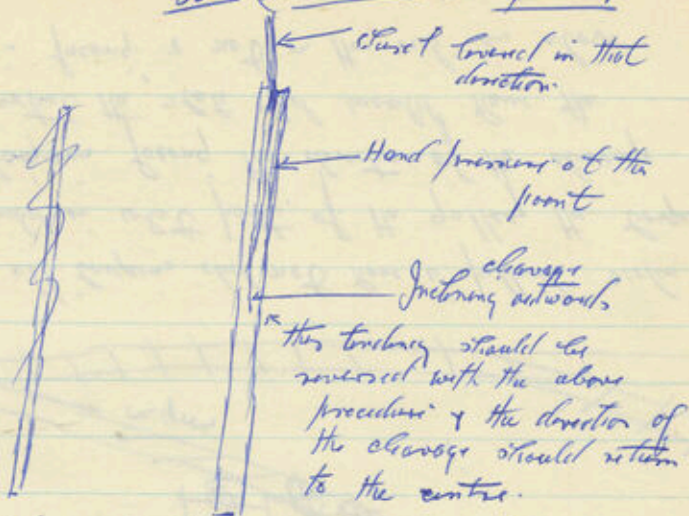 levered in that
direction.
Hand pressure at this
point
cleavage
Inclining outwards
This tendency should be
reversed with the above
procedure & the direction of
the cleavage should return
to the centre.